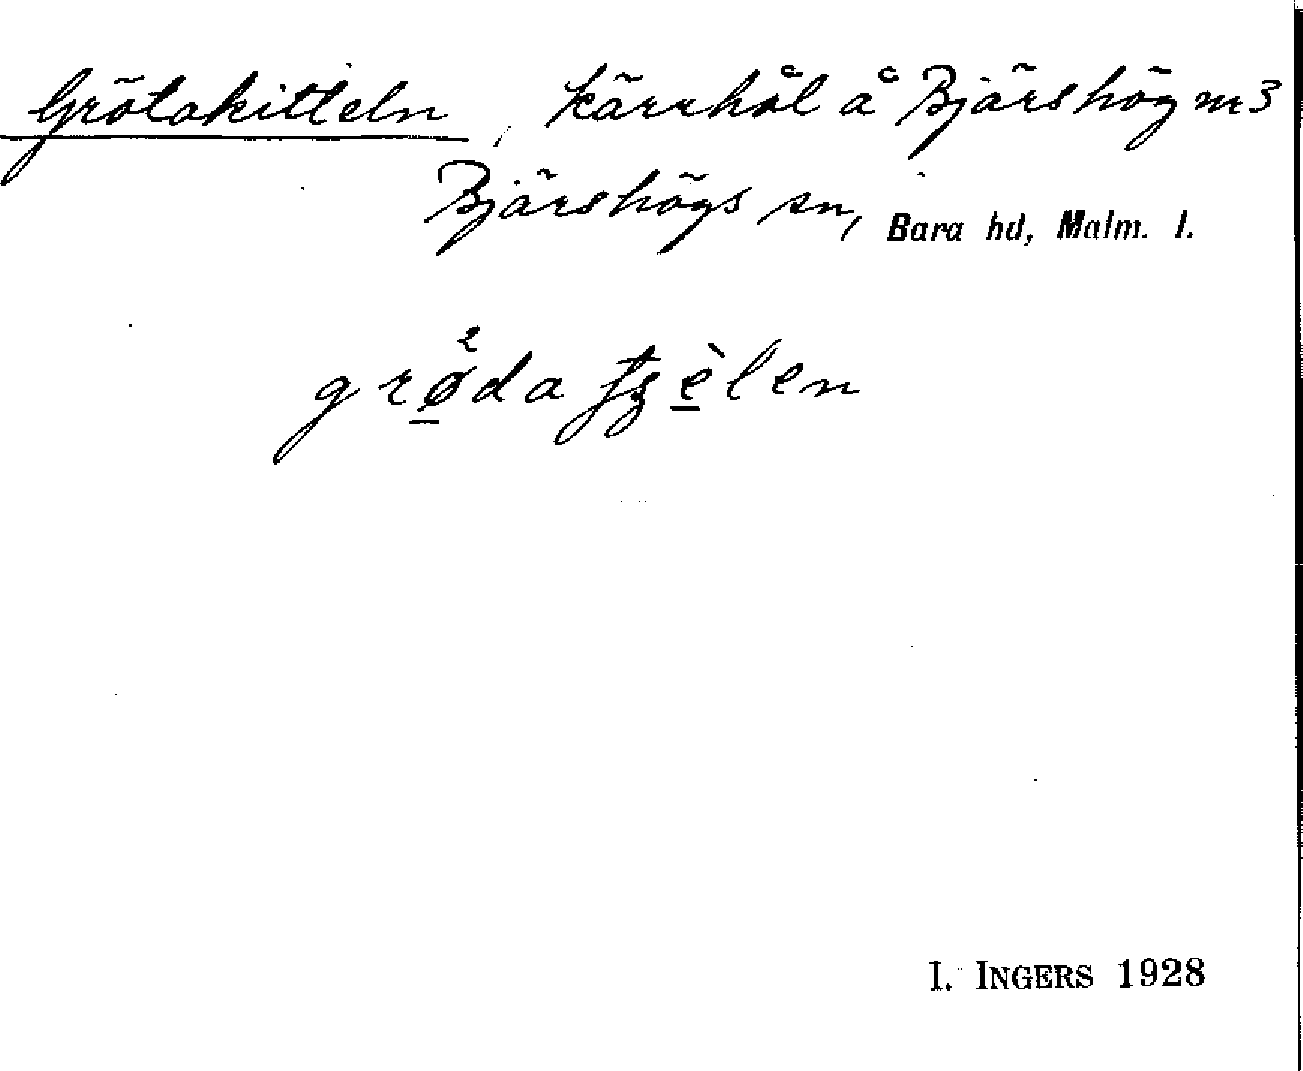 Grötakitteln, kärrhål å Bjärshög nr 3
Bjärshögs sn, Bara hd, Malm. l.
grø̀da tʂèlen
I. INGERS 1928